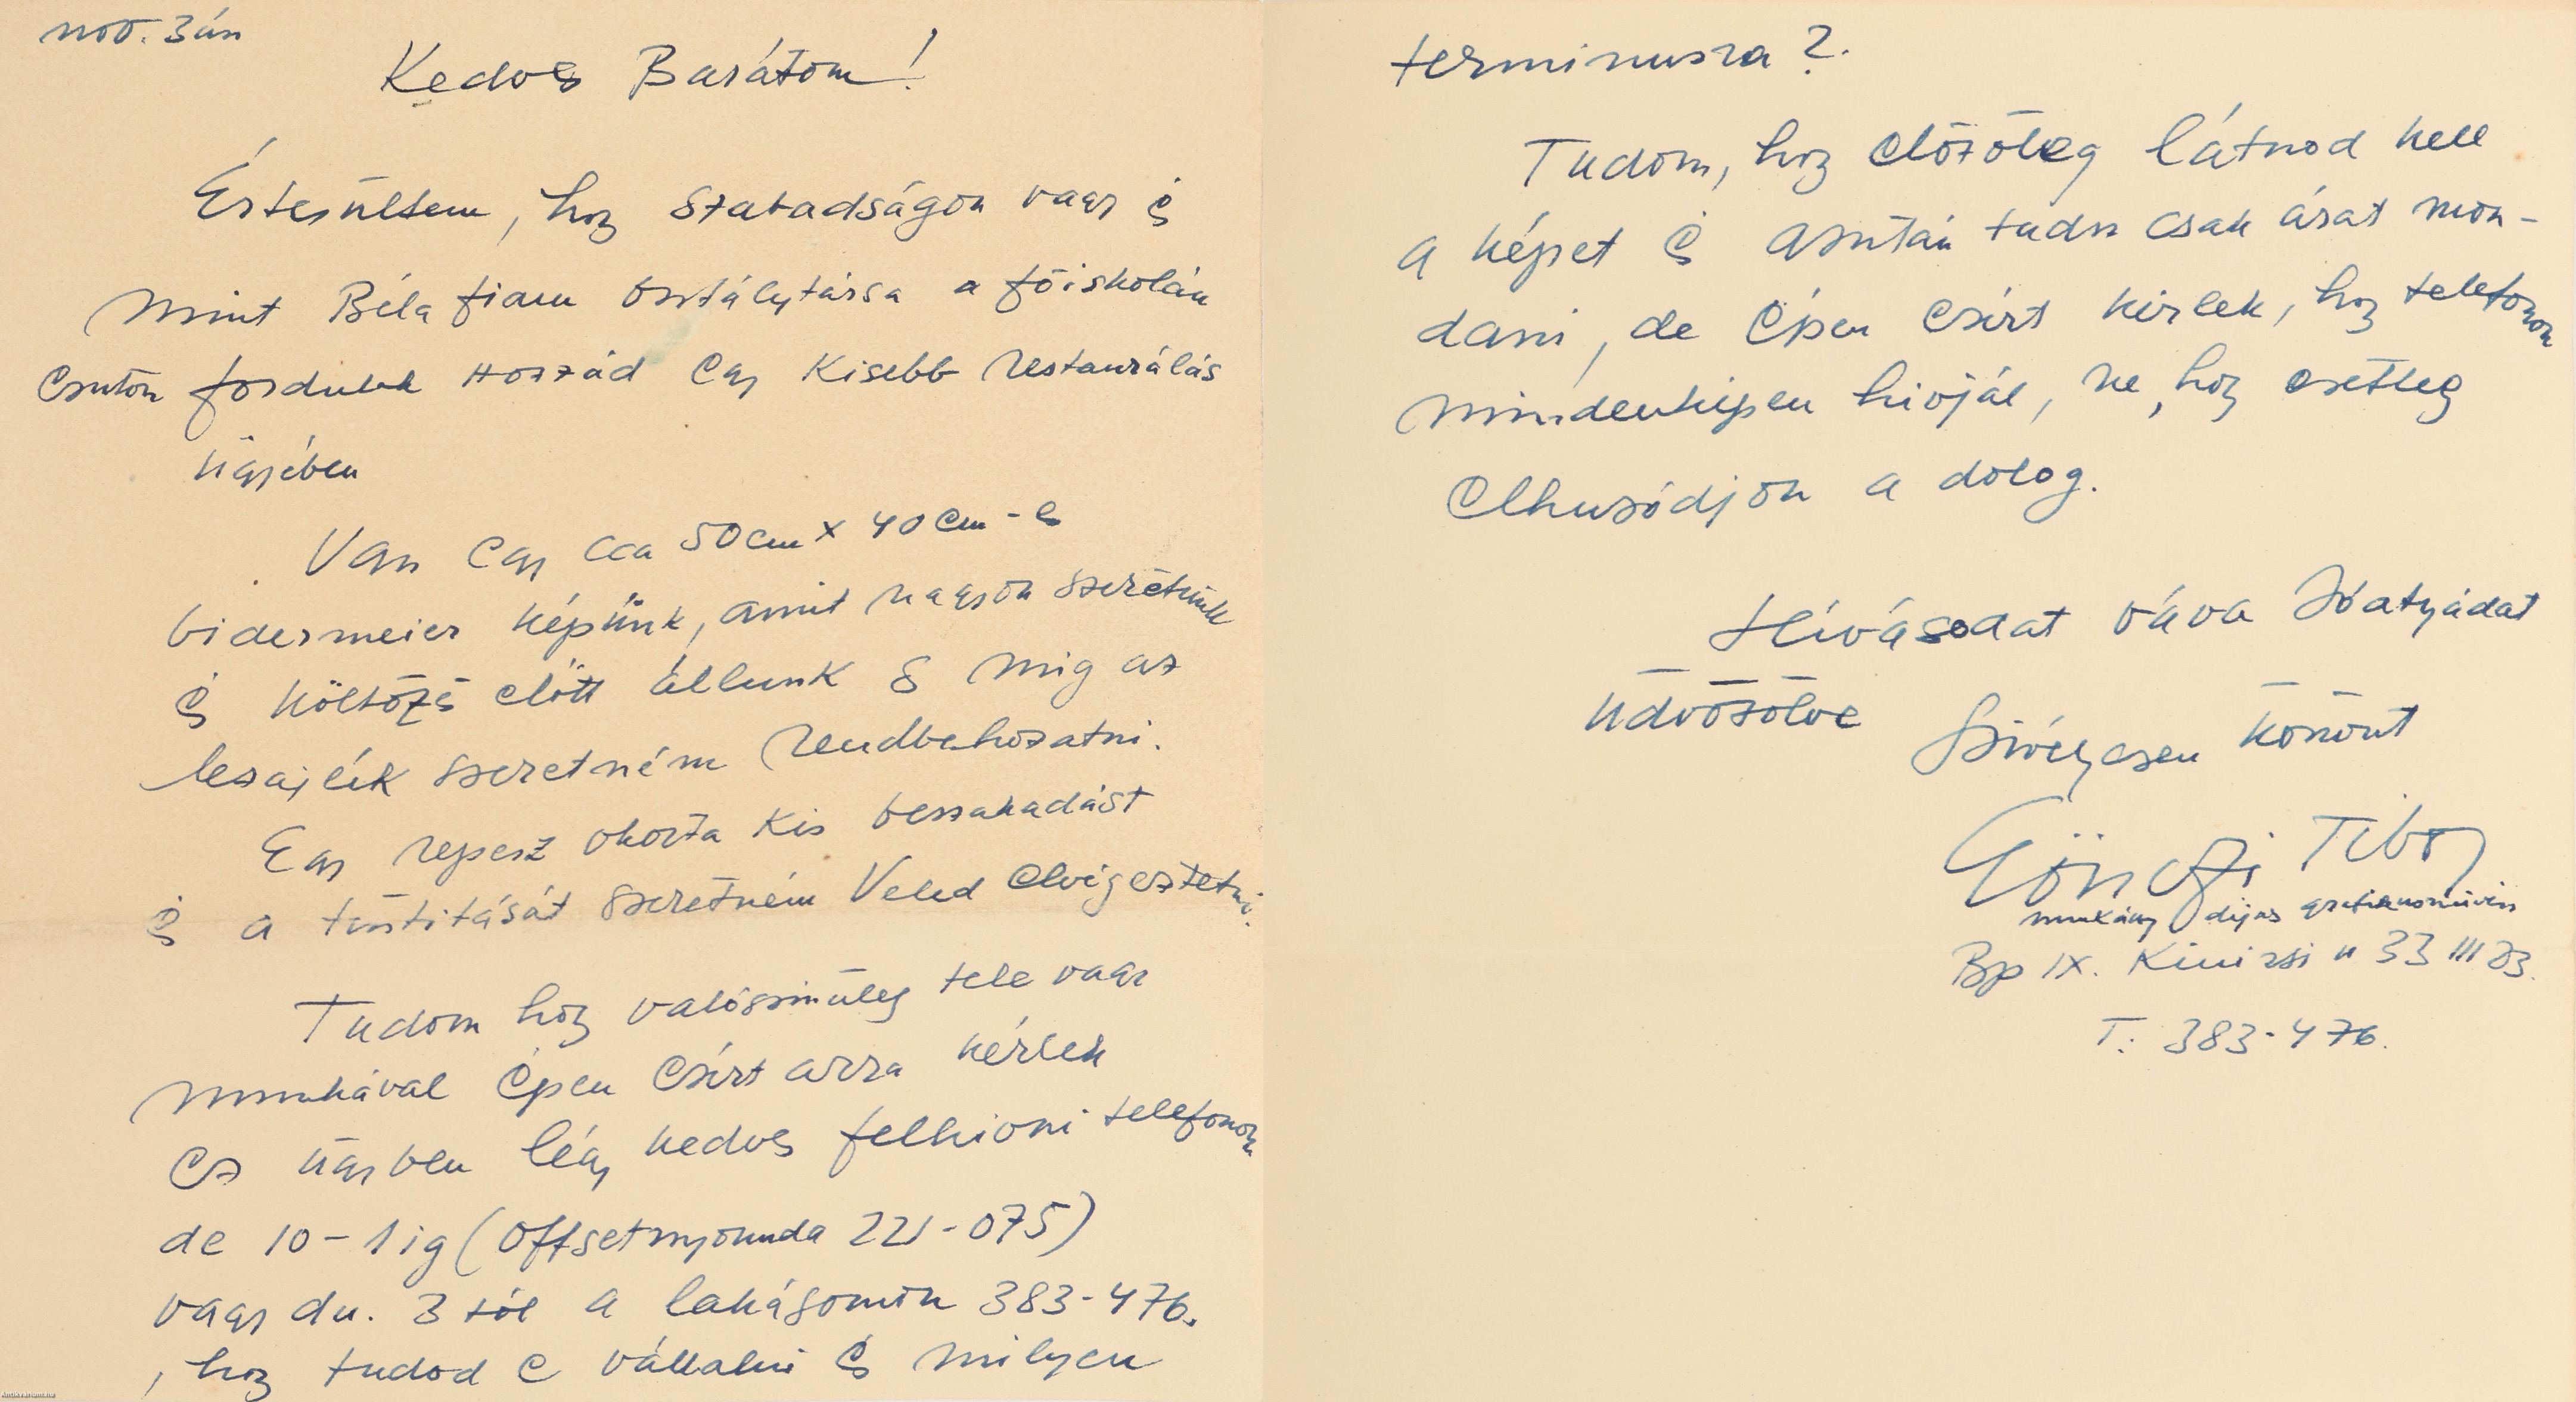 nov. 3án
Kedves Barátom!
Értesültem, hogy szabadságon vagy és
mint Béla fiam osztálytársa a főiskolán
ezuton fordulok Hozzád egy kisebb restaurálás
ügyében
Van egy cca 50cm x 40cm-es
bidermeier képünk, amit nagyon szeretünk
és költözés előtt állunk s mig az
lezajlik szeretném rendbehozatni.
Egy repesz okozta kis beszakadást
és a tisztitását szeretném Veled elvégeztetni.
Tudom hogy valószinüleg tele vagy
munkával épen ezért arra kérlek
ez ügyben légy kedves felhivni telefonon
de 10-1ig (Offsetnyomda 221-075)
vagy du. 3tól a lakásomon 383-476.
, hogy tudod e vállalni és milyen
terminusra?
Tudom, hogy előzőleg látnod kell
a képet és azután tudsz csak árat mon-
dani, de épen ezért kérlek, hogy telefonon
mindenképen hivjál, ne, hogy esetleg
elhuzódjon a dolog.
Hívásodat várva Jóatyádat
üdvözölve Szivélyesen köszönt
Gönczi Tibor
munkácsy dijas grafikusművész
Bp IX. Kinizsi u 33 III 23.
T: 383-476.
Antikvarium.hu